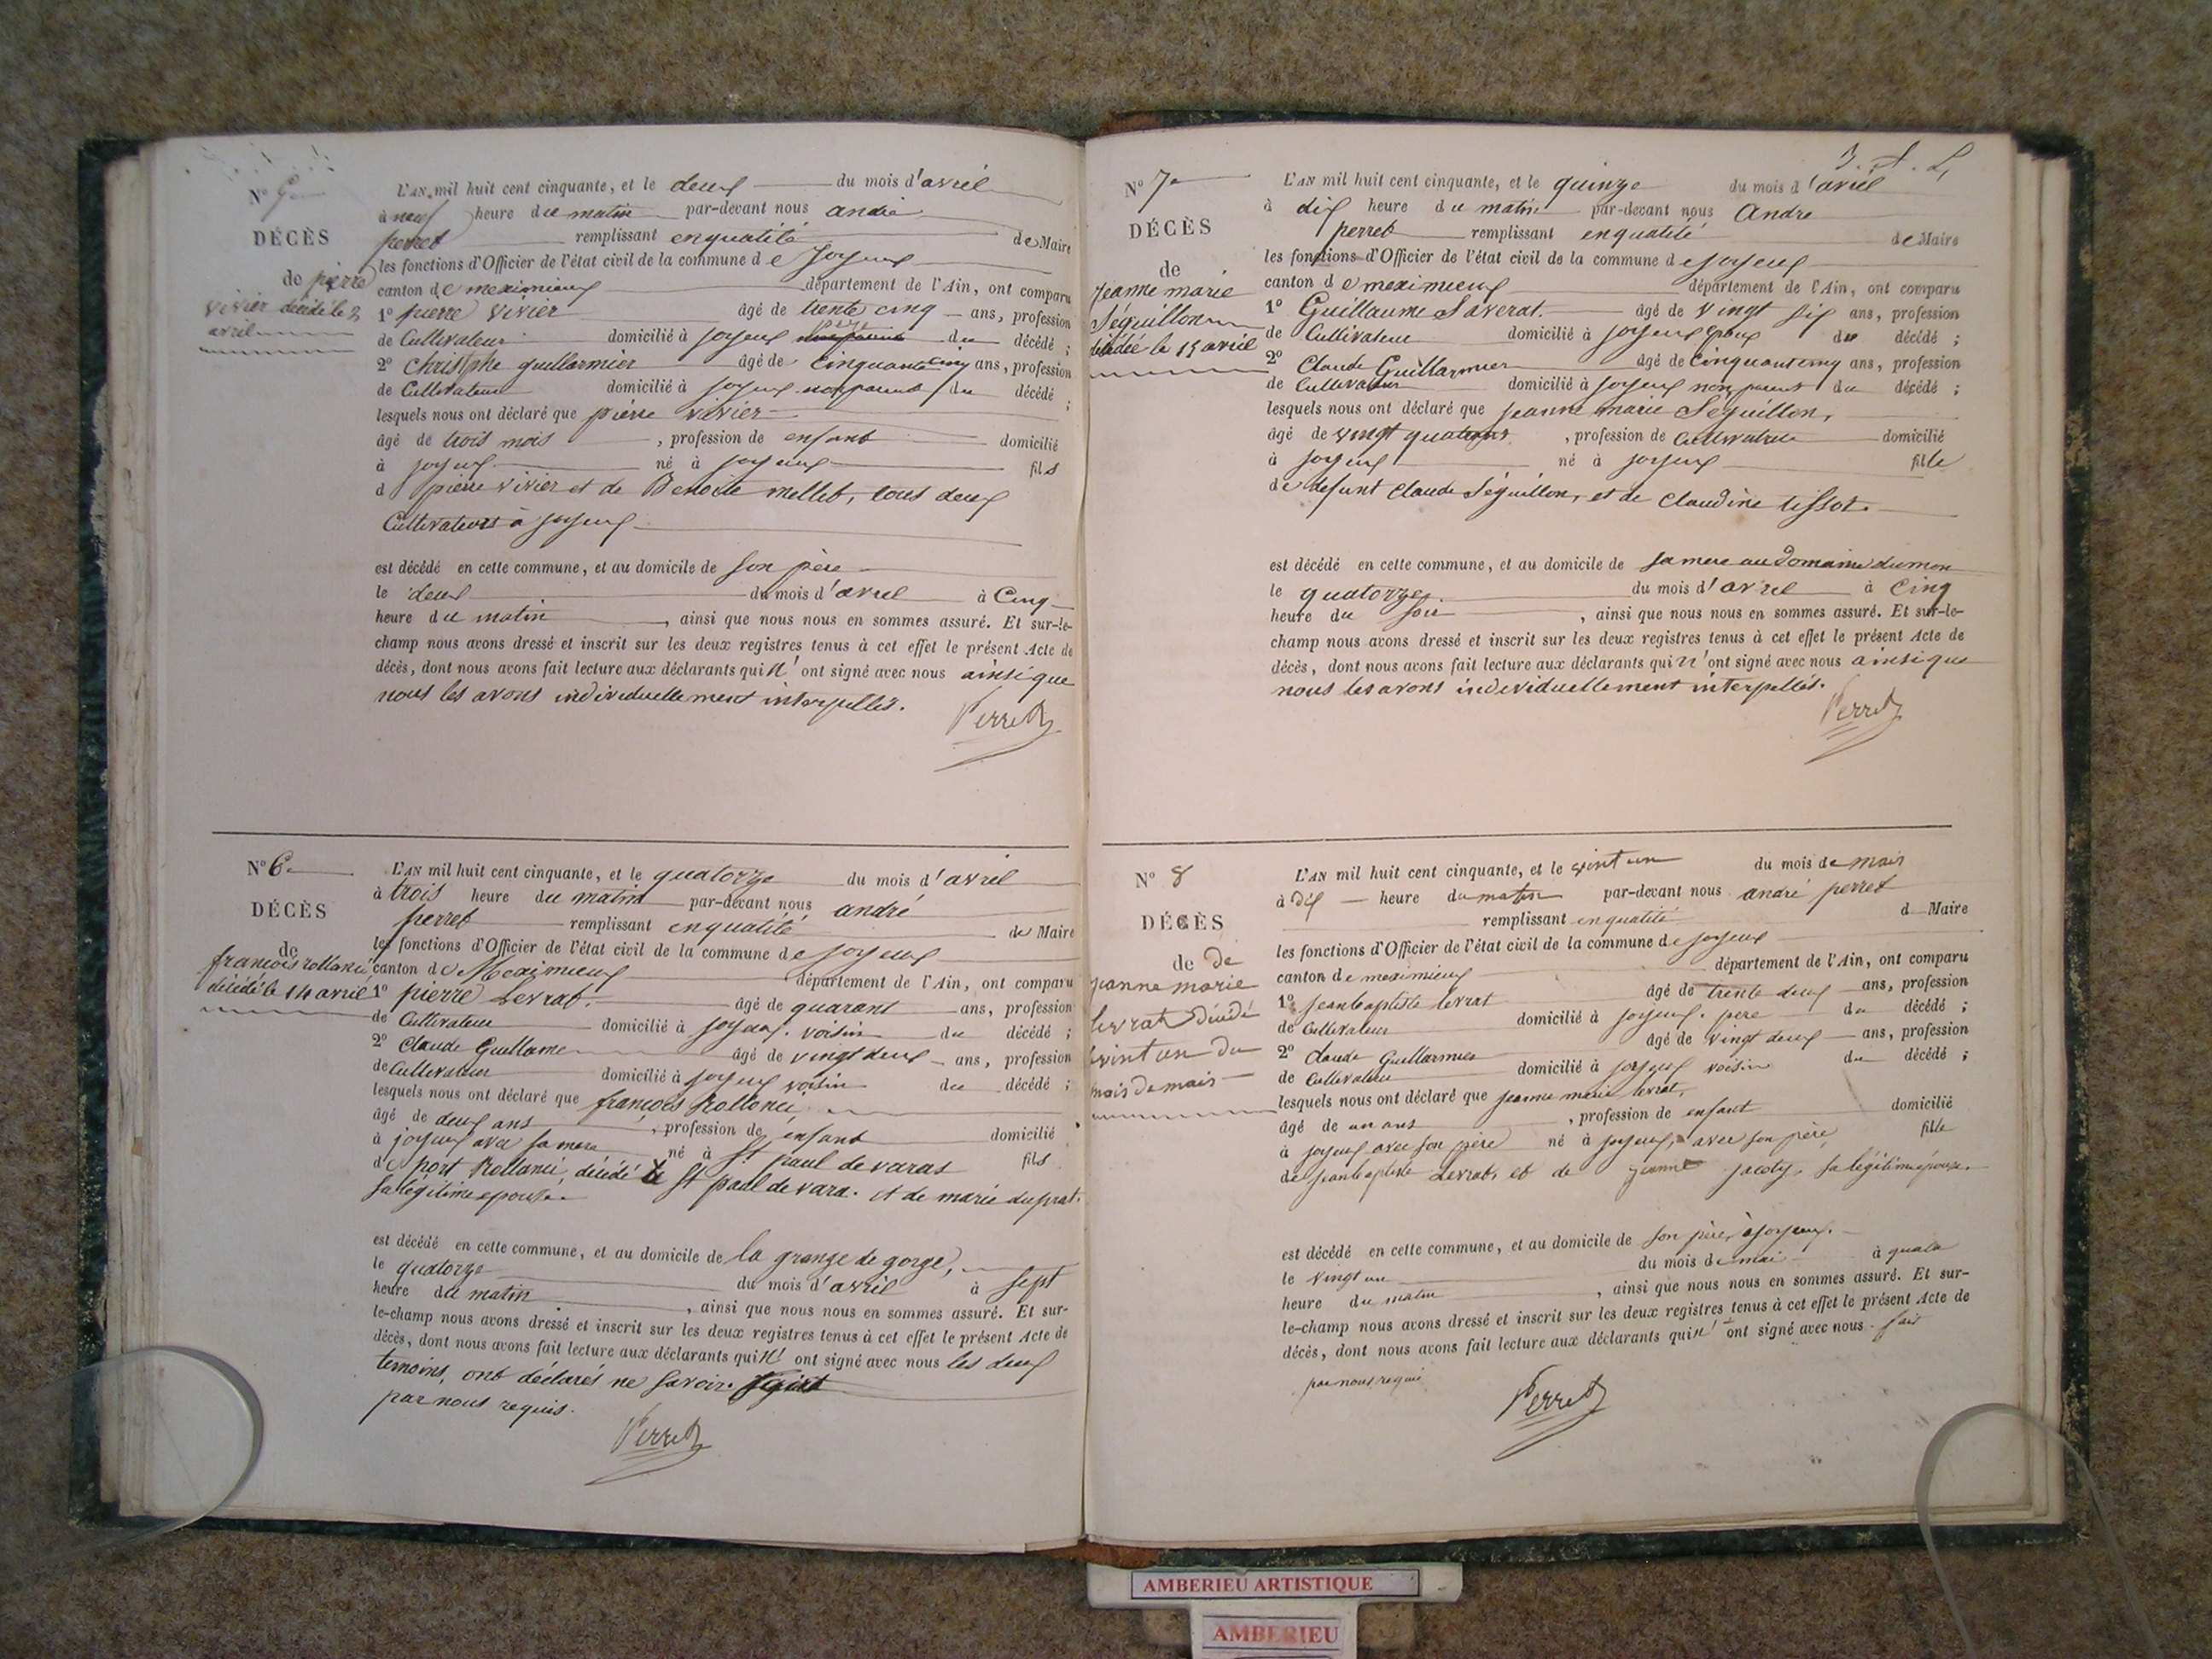 DÉCÈS
de pierre
vivier décédé le 2
avril
L'AN mil huit cent cinquante, et le deux du mois d'avril
à neuf heure du matin par-devant nous andré
perret remplissant enqualité de Maire
les fonctions d'Officier de l'état civil de la commune de joyeux
canton de meximieux département de l'Ain, ont comparu
1° pierre vivier âgé de trente cinq ans, profession
de Cultivateur domicilié à joyeux du décédé ;
2° Christophe guillarmier âgé de cinquante cinq ans, profession
de Cultivateur domicilié à joyeux non parent du décédé ;
lesquels nous ont déclaré que pierre vivier
âgé de trois mois , profession de enfant domicilié
à joyeux né à joyeux fils
d pierre vivier et de Benoite mellet, tous deux
Cultivateurs à joyeux
est décédé en cette commune, et au domicile de son père
le deux du mois d'avril à Cinq
heure du matin , ainsi que nous nous en sommes assuré. Et sur-le-
champ nous avons dressé et inscrit sur les deux registres tenus à cet effet le présent Acte de
décès, dont nous avons fait lecture aux déclarants qui n'ont signé avec nous ainsi que
nous les avons individuellement interpellés.
Perret
N° 6
DÉCÈS
de
françois rollanci
décédé le 14 avril
L'AN mil huit cent cinquante, et le quatorze du mois d'avril
à trois heure du matin par-devant nous andré
perret remplissant enqualité de Maire
les fonctions d'Officier de l'état civil de la commune de joyeux
canton de Meximieux département de l'Ain, ont comparu
1° pierre Levrat. âgé de quarant ans, profession
de Cultivateur domicilié à joyeux. voisin du décédé ;
2° Claude Guillame âgé de vingt deux ans, profession
de Cultivateur domicilié à joyeux voisin du décédé ;
lesquels nous ont déclaré que françois Rollanci
âgé de deux ans , profession de enfant domicilié
à joyeux avec sa mere né à St paul de varas fils
de port Rollanci, décédé à St paul de vara. et de marie duprat.
sa légitime epouse.
est décédé en cette commune, et au domicile de la grange de gorge,
le quatorze du mois d'avril à sept
heure du matin , ainsi que nous nous en sommes assuré. Et sur-
le-champ nous avons dressé et inscrit sur les deux registres tenus à cet effet le présent Acte de
décès, dont nous avons fait lecture aux déclarants qui n' ont signé avec nous les deux
temoins, ont déclarés ne savoir
par nous requis.
Perret
N° 7
DÉCÈS
de
Jeanne marie
Séguillon
décédée le 15 avril
L'AN mil huit cent cinquante, et le quinze du mois d'avril
à dix heure du matin par-devant nous Andre
perret remplissant enqualité de Maire
les fonctions d'Officier de l'état civil de la commune de joyeux
canton de meximieux département de l'Ain, ont comparu
1° Guillaume Saverat. âgé de vingt six ans, profession
de Cultivateur domicilié à joyeux Epoux du décédé ;
2° Claude Guillarmier âgé de cinquante cinq ans, profession
de Cultivateur domicilié à joyeux non parent du décédé ;
lesquels nous ont déclaré que jeanne marie Séguillon,
âgé de vingt quatre ans , profession de Cultivatrice domicilié
à joyeux né à joyeux fille
de defunt Claude Séguillon, et de Claudine tissot.
est décédé en cette commune, et au domicile de sa mere au domaine dumon
le quatorze du mois d'avril à Cinq
heure du soir , ainsi que nous nous en sommes assuré. Et sur-le-
champ nous avons dressé et inscrit sur les deux registres tenus à cet effet le présent Acte de
décès, dont nous avons fait lecture aux déclarants qui n'ont signé avec nous ainsi que
nous les avons individuellement interpellés.
Perret
N° 8
DÉCÈS
de De
jeanne marie
levrat décédé
vint un du
mois de mais
L'AN mil huit cent cinquante, et le vint un du mois de mais
à dix heure du matin par-devant nous andré perret
remplissant enqualité d Maire
les fonctions d'Officier de l'état civil de la commune de joyeux
canton de meximieux département de l'Ain, ont comparu
1° Jean baptiste levrat âgé de trente deux ans, profession
de Cultivateur domicilié à joyeux. pere du décédé ;
2° Claude Guillarmier âgé de vingt deux ans, profession
de Cultivateur domicilié à joyeux voisin du décédé ;
lesquels nous ont déclaré que jeanne marie levrat,
âgé de un ans , profession de enfant domicilié
à joyeux avec son père né à joyeux, avec son père fille
de jean baptiste Levrat, et de jeanne jacoty. sa légitime épouse.
est décédé en cette commune, et au domicile de son père, à joyeux.
le vingt un du mois de mai à quatr
heure du matin , ainsi que nous nous en sommes assuré. Et sur-
le-champ nous avons dressé et inscrit sur les deux registres tenus à cet effet le présent Acte de
décès, dont nous avons fait lecture aux déclarants qui n' ont signé avec nous
par nous requis
Perret
AMBERIEU ARTISTIQUE
AMBERIEU